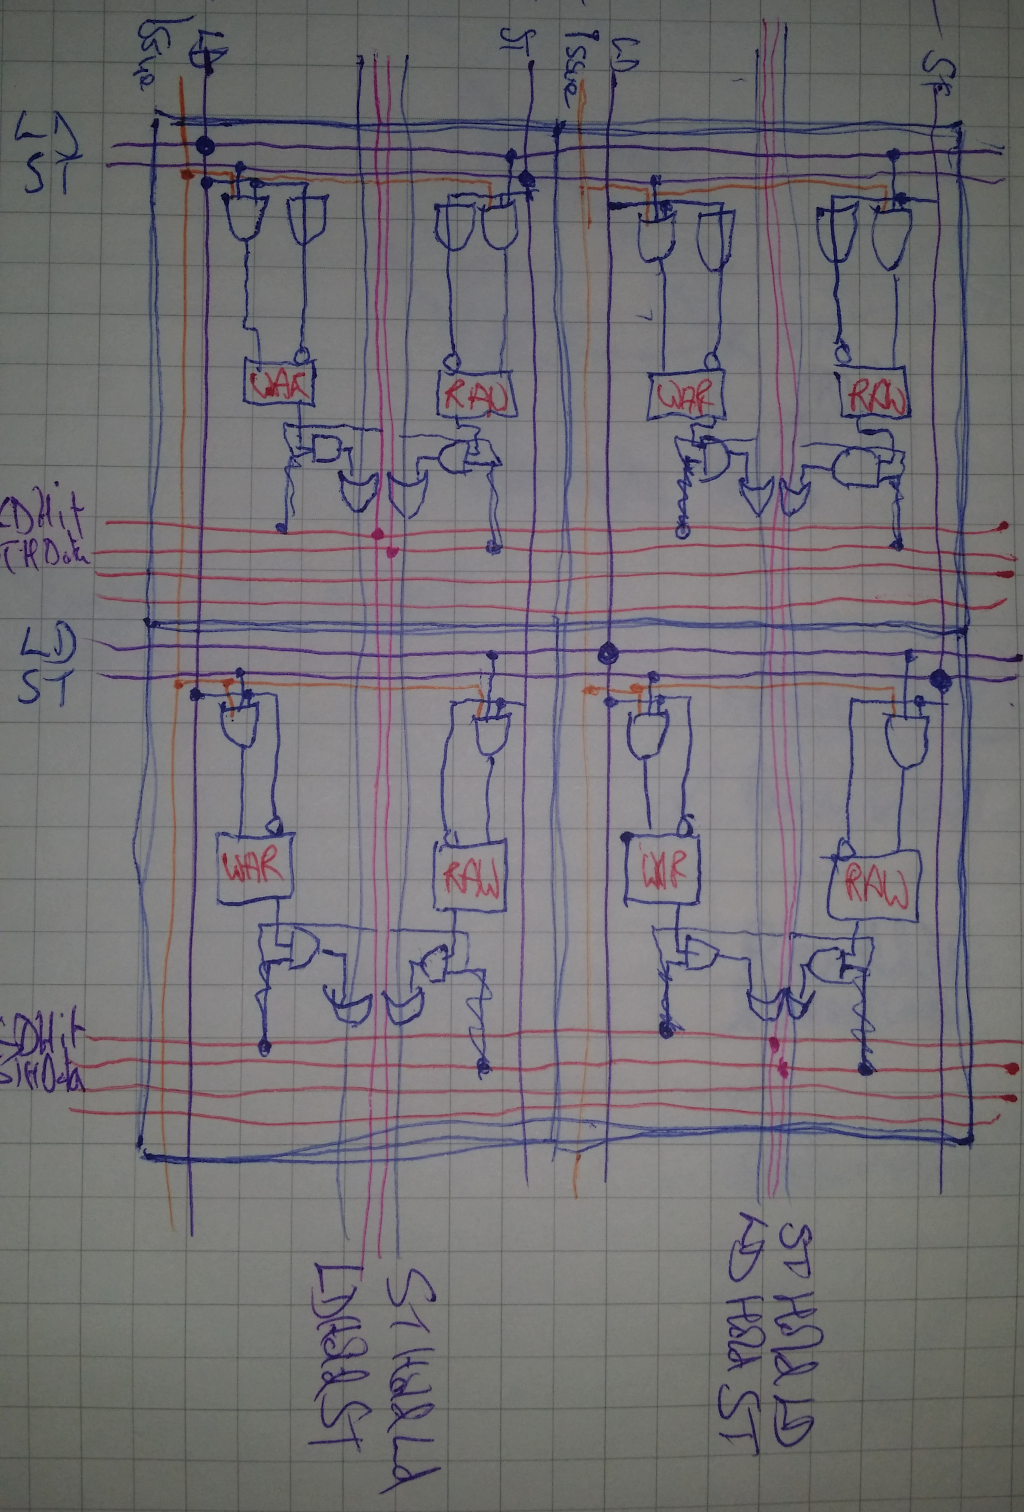 Issue
LD
ST
Issue
LD
ST
LD
ST
WAR
RAW
WAR
RAW
LDHit
STHData
LD
ST
WAR
RAW
WAR
RAW
LDHit
STHData
LD Hold ST
ST Hold Ld
LD Hold ST
ST Hold LD